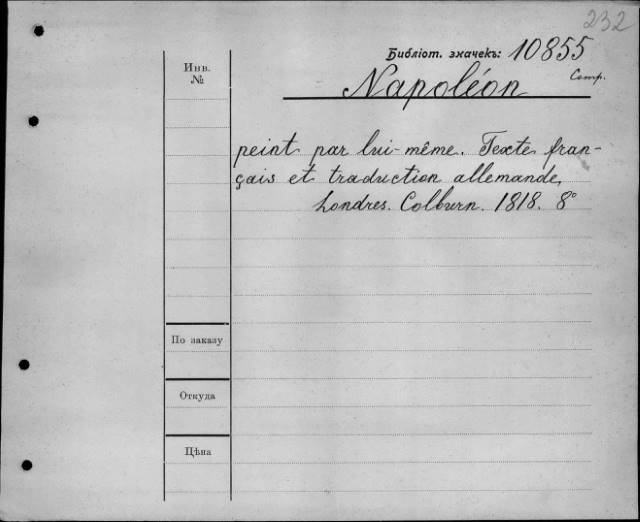 232
Библіот. значекъ: 10855
Инв.
№
Napoléon
peint par lui-même. Texte fran-
çais et traduction allemande,
Londres. Colburn. 1818. 8°
По заказу
Откуда
Цѣна